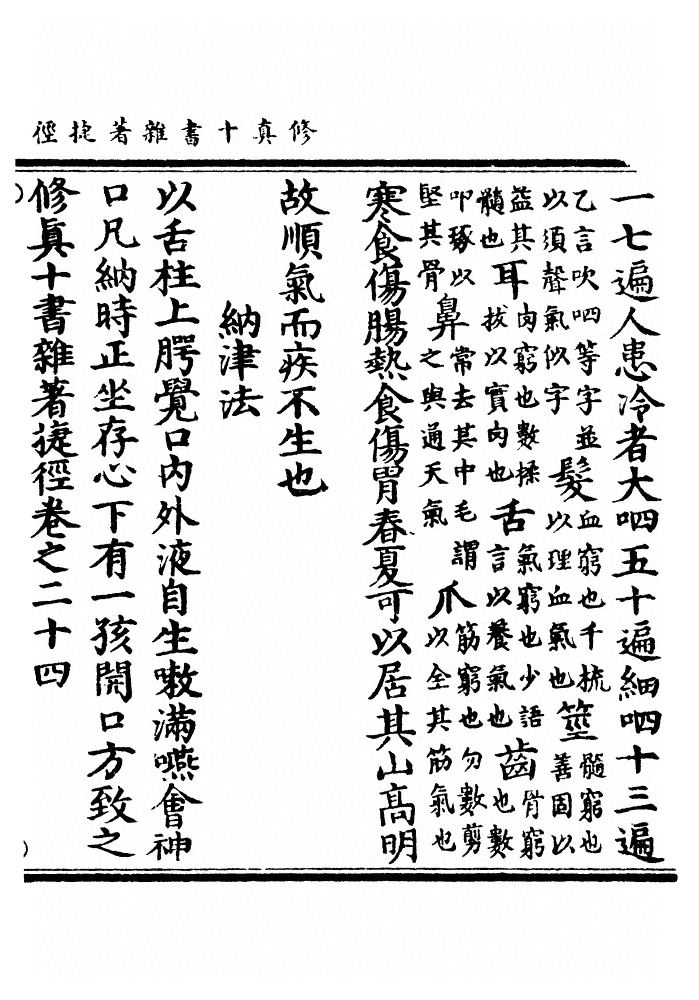 修真十書雜著捷徑
一七遍人患冷者大呬五十遍細呬十三遍
乙言吹呬等字並
以須聲氣似字
髮
血窮也千梳
以理血氣也
筮
髓窮也
善固以
益其
髓也
耳
肉窮也數揉
拔以實肉也
舌
氣窮也少語
言以養氣也
齒
骨窮
也數
叩琢以
堅其骨
鼻
常去其中毛謂
之與通天氣
爪
筋窮也勿數剪
以全其筋氣也
寒食傷腸熱食傷胃春夏可以居其山高明
故順氣而疾不生也
納津法
以舌柱上腭覺口內外液自生嗽滿嚥會神
口凡納時正坐存心下有一孩開口方致之
修眞十書雜著捷徑卷之二十四